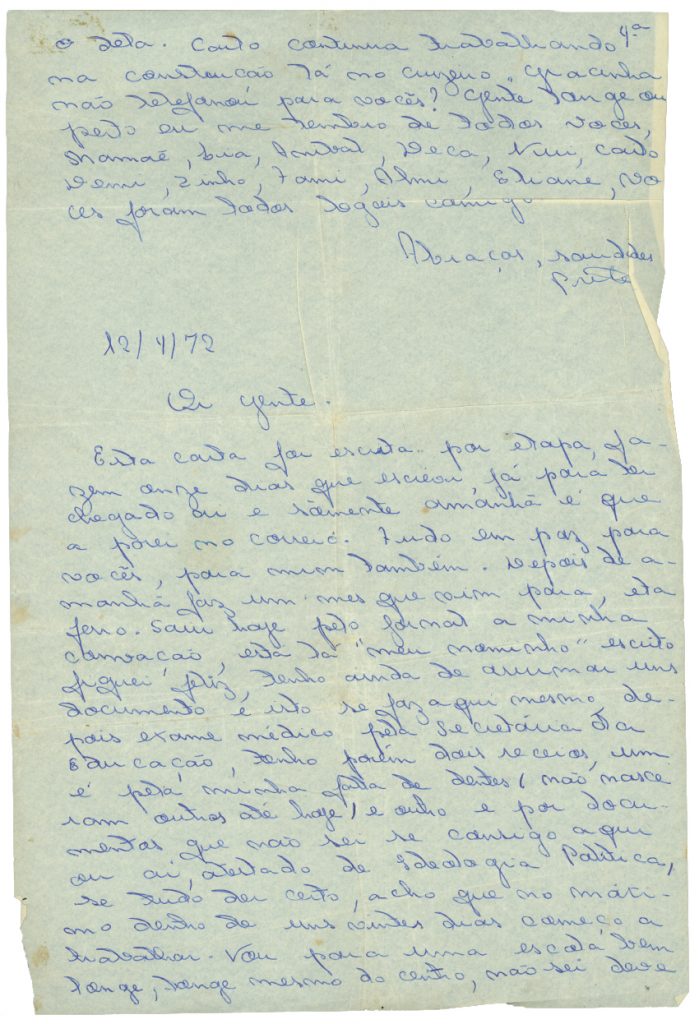 4ª
o dela. Carlo continua trabalhando
na construção lá no cruzeiro. Gracinha
não telefonou para vocês? Gente longe ou
perto eu me lembro de todos vocês,
Mamãe, Lia, Deca, Nivi, Carlo
Demi, Zinho, Tami, Almi, Eliane, vo
ces foram todos legais comigo
Abraços, saudades
Preta
12/4/72
Oi gente.
Esta carta foi escrita por etapa, fa-
zem onze dias que escrevi, já para ter
chegado ai e sòmente amanhã é que
a porei no correio. Tudo em paz para
vocês, para mim também. Depois de a-
manhã faz um mes que vim para, eta
ferro. Saiu hoje pelo jornal a minha
convocação, está lá "meu nominho" escrito
fiquei feliz, tenho ainda de arrumar uns
documento e isto se faz aqui mesmo, de-
pois exame médico pela Secretária da
Educação, tenho porém dois receios, um
é pela minha falta de dentes (não nasce
ram outros até hoje) e outro e por docu-
mentos que não sei se consigo aqui
ou ai, atestado de Ideologia Política,
se tudo der certo, acho que no máxi-
mo dentro de uns vintes dias começo a
trabalhar. Vou para uma escola bem
longe, longe mesmo do centro, não sei deve